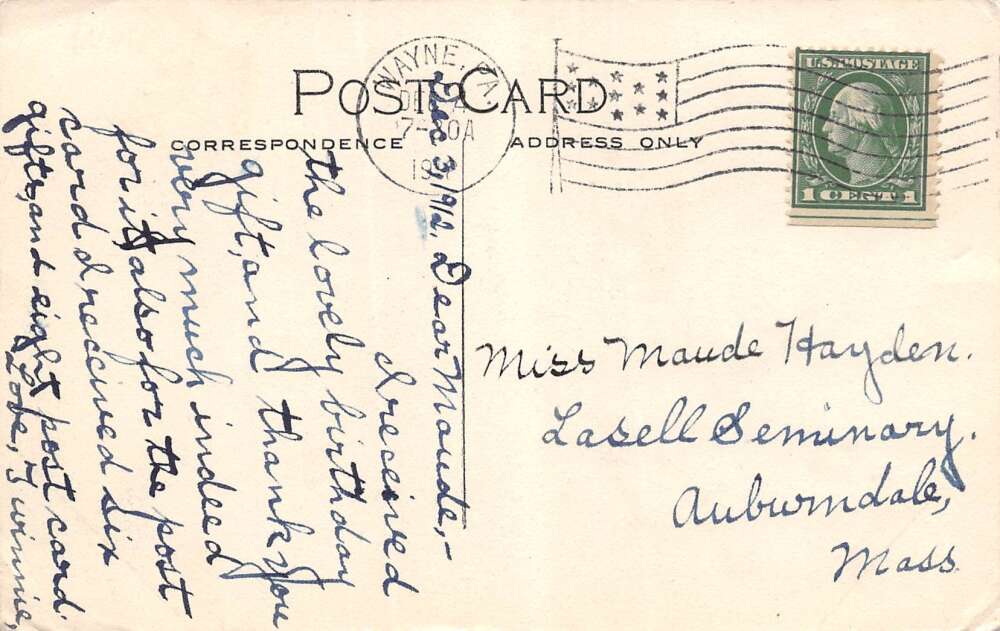 POST CARD
CORRESPONDENCE
ADDRESS ONLY
WAYNE, PA.
U.S. POSTAGE
1 CENT 1
Dec 3/1912. Dear Maude,-
I received
the lovely birthday
gift, and thank you
very much indeed
for it, also for the post
card I received six
gifts, and eight post card.
Love, Twinnie,
Miss Maude Hayden.
Lasell Seminary.
Auburndale,
Mass.